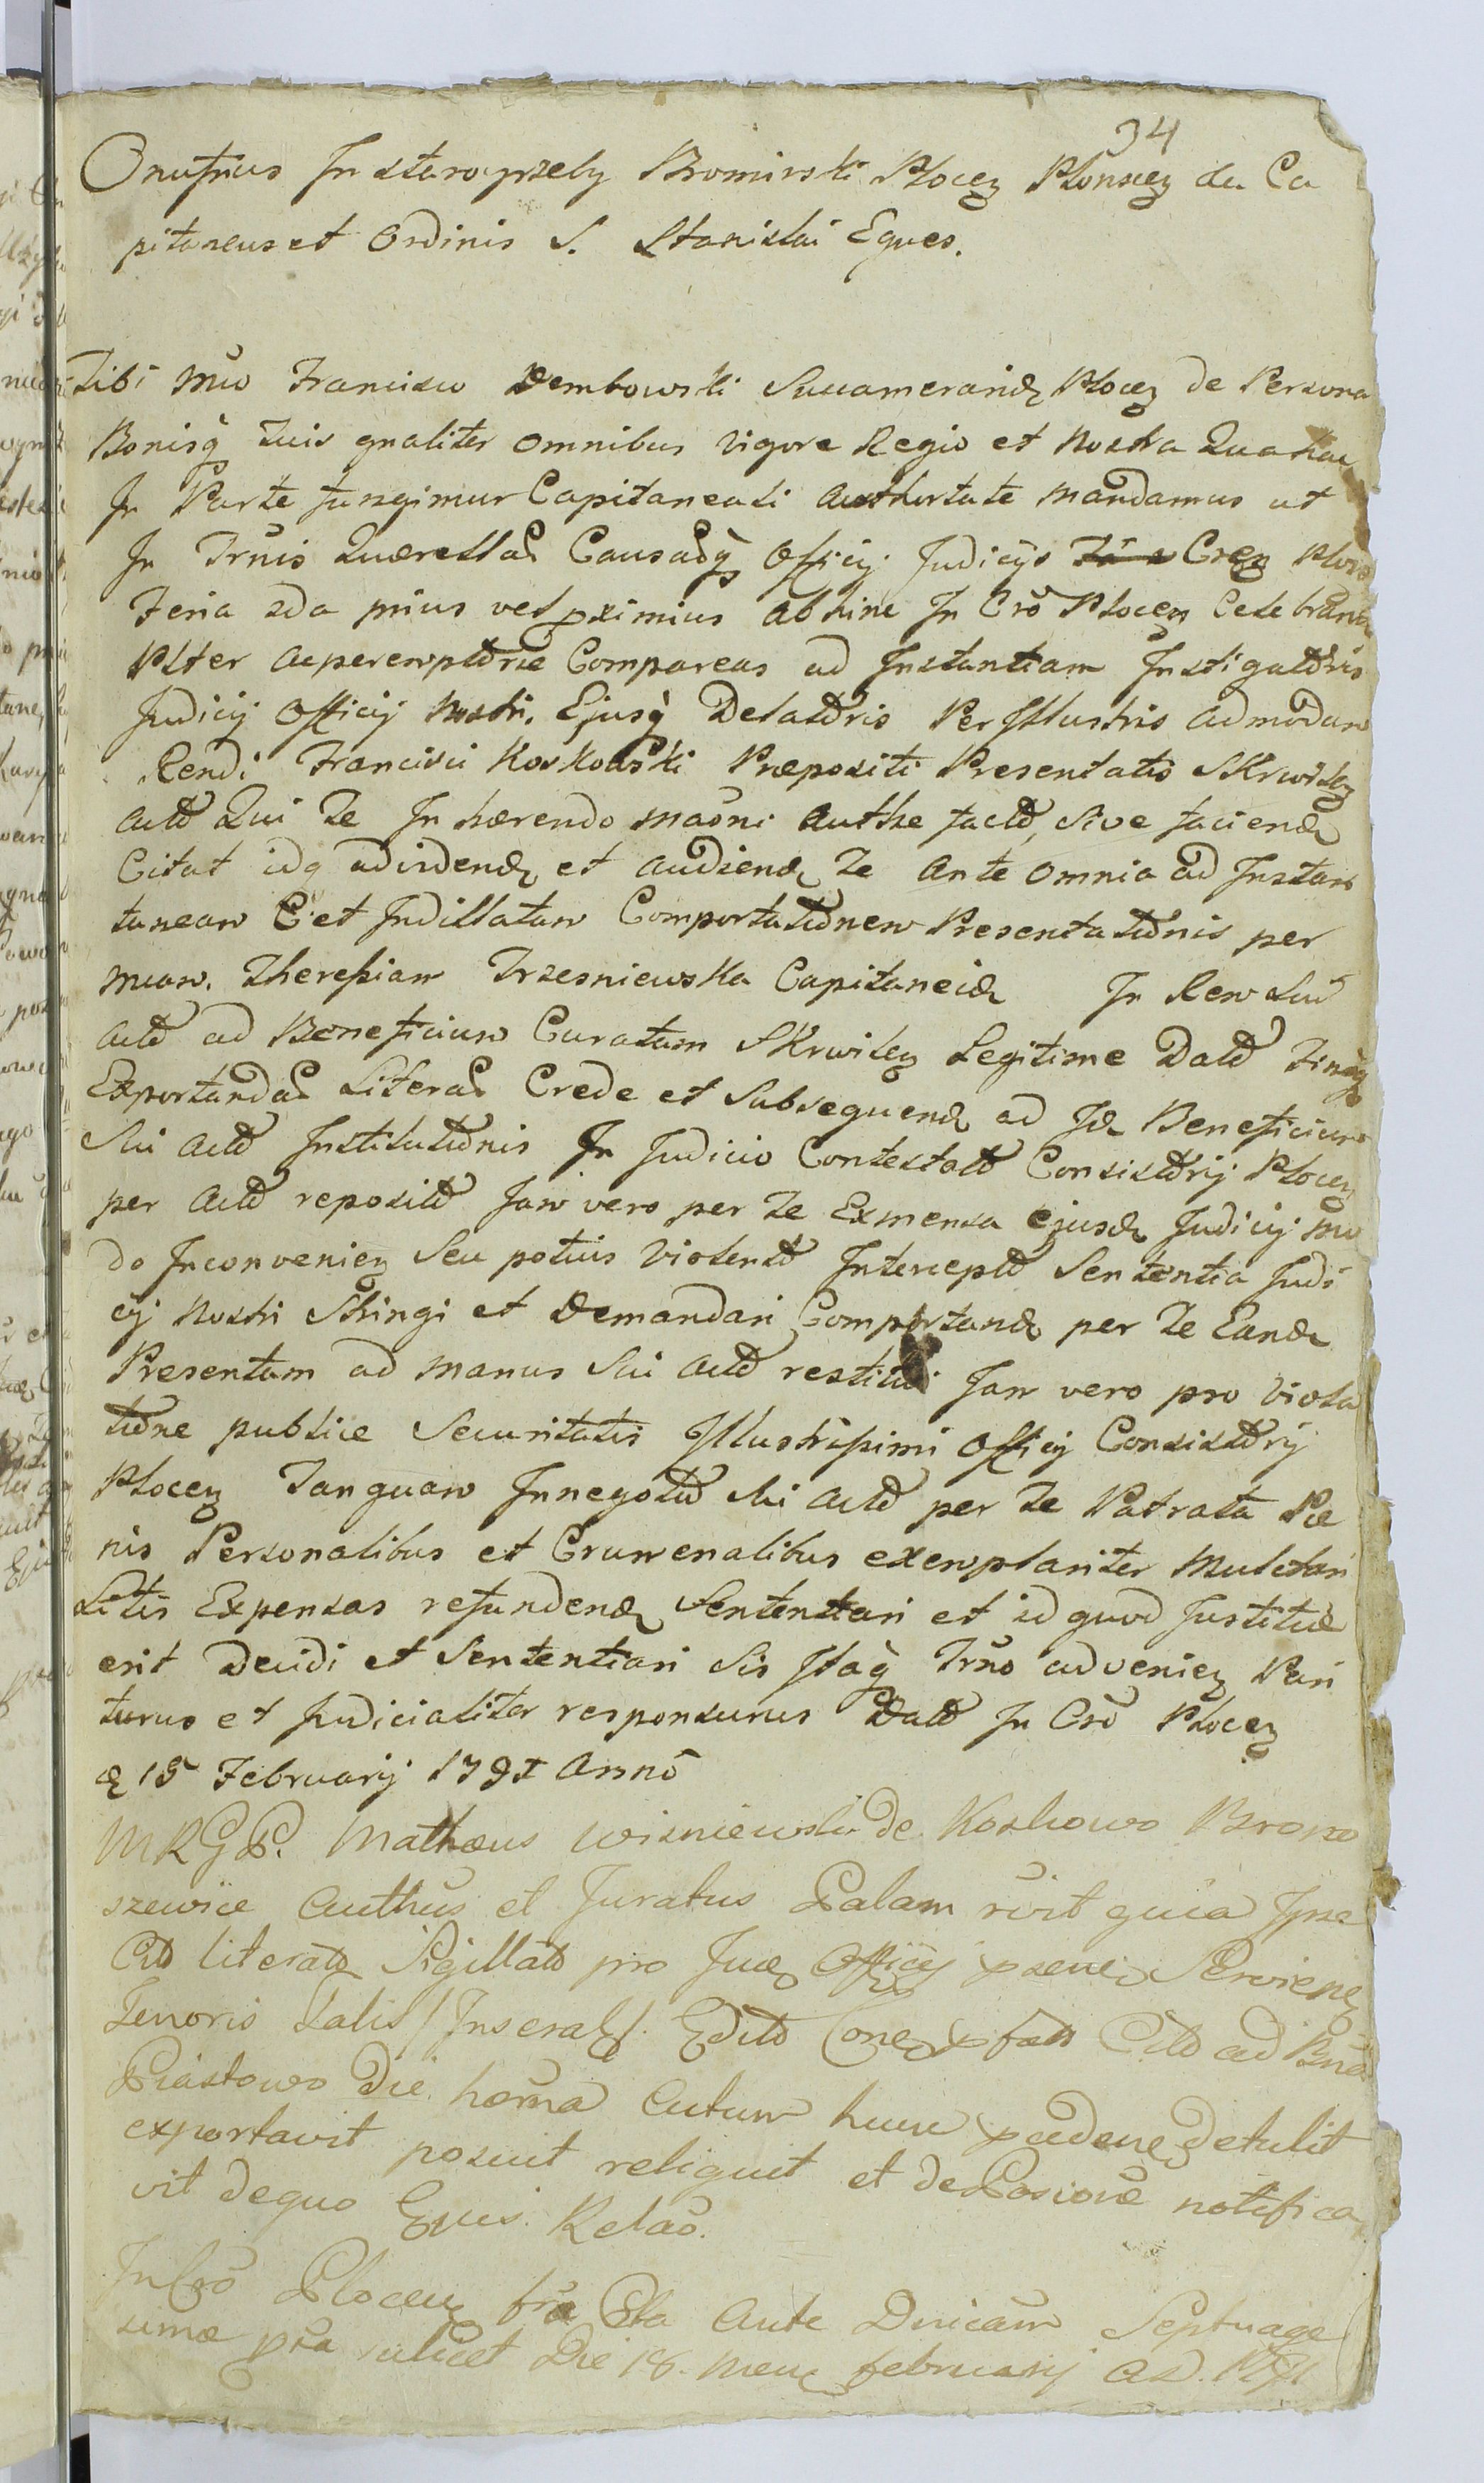 34
Onufrius In Staroyrzeby Bromirski Plocen Plonscen Ca
pitaneus et Ordinis S. Stanislai Eques.
Tibi Mco Francisco Dembowski Succamerarid Plocen de Persona
Bonisq Tuis gnaliter omnibus vigore Regio et Nostra Qua hac
In Parte fungimur Capitaneali Authoritate mandamus ut
In Trnis Querellas Causasq Officij Judicijs Cren
Feria 2da prius vel pximius abhinc In Cro Plocen Celebrand
Plter ac peremptorie Compareas ad Instantiam Instigatoris
Judicij Officij Nostri, Ejusq Delatoris Per Illustris admodum
Rendi Francisci Koskowski Præpositi Presentatis Skrwilen
acto Qui Te In hærendo maoni Authe facto, sive faciend
Citat idq ad videnda et audiend Te Ante omnia ad Instan
taneam et Comportationem Presentationis per
Mcam. Theresiam Trzesniewska Capitaneid In Rem Sui
acto ad Beneficium Curatum Skrwilen Legitime Dato
Exportandas Literas Crede et Subsequend ad Id Beneficium
Sui acto Institutionis In Judicio Contestato Consistorij Plocen
per acto reposito Jam vero per Te Ex mensa ejusd Judicij mo
do Inconvenien Seu potius Violento Intercepto Sententia Judi
cij Nostri Stringi et Demandari Comportand per Te Eand
Presentam ad manus Sui acto restitui Jam vero pro Viola
tione publice Securitatis Illustrissimi Officij Consistorij
Plocen Tanquam In negotio Sui acto per Te Patrata Pæ
nis Personalibus et Crumenalibus exemplariter Mulctari
Litis Expensas refundend Sententiari et id quod Justitiæ
erit Decidi et Sententiari Sis Itaq Trno advenien Pari
turus et Judicialiter responsurus Dato In Cro Plocen
d 15 Februarij 1791 Anno
MRGP. Mathæus Wisniewski de Koskowo Brono
szewice Authus et Juratus Palam rcvit quia Ipse
Cito literato Sigillato pro Jud Officij psene Servien
Tenoris Talis /Inseral/. Edito Cito ad Bna
Piastowo Die herna Actum hunc pceden detulit
exportavit posuit reliquit et de Posione notifica
vit de quo Ejus. Relao.
In Cro Plocen fra 6ta Ante Dnicam Septuage
simæ pxa scilicet Die 18. Mens februarij AD. 1791